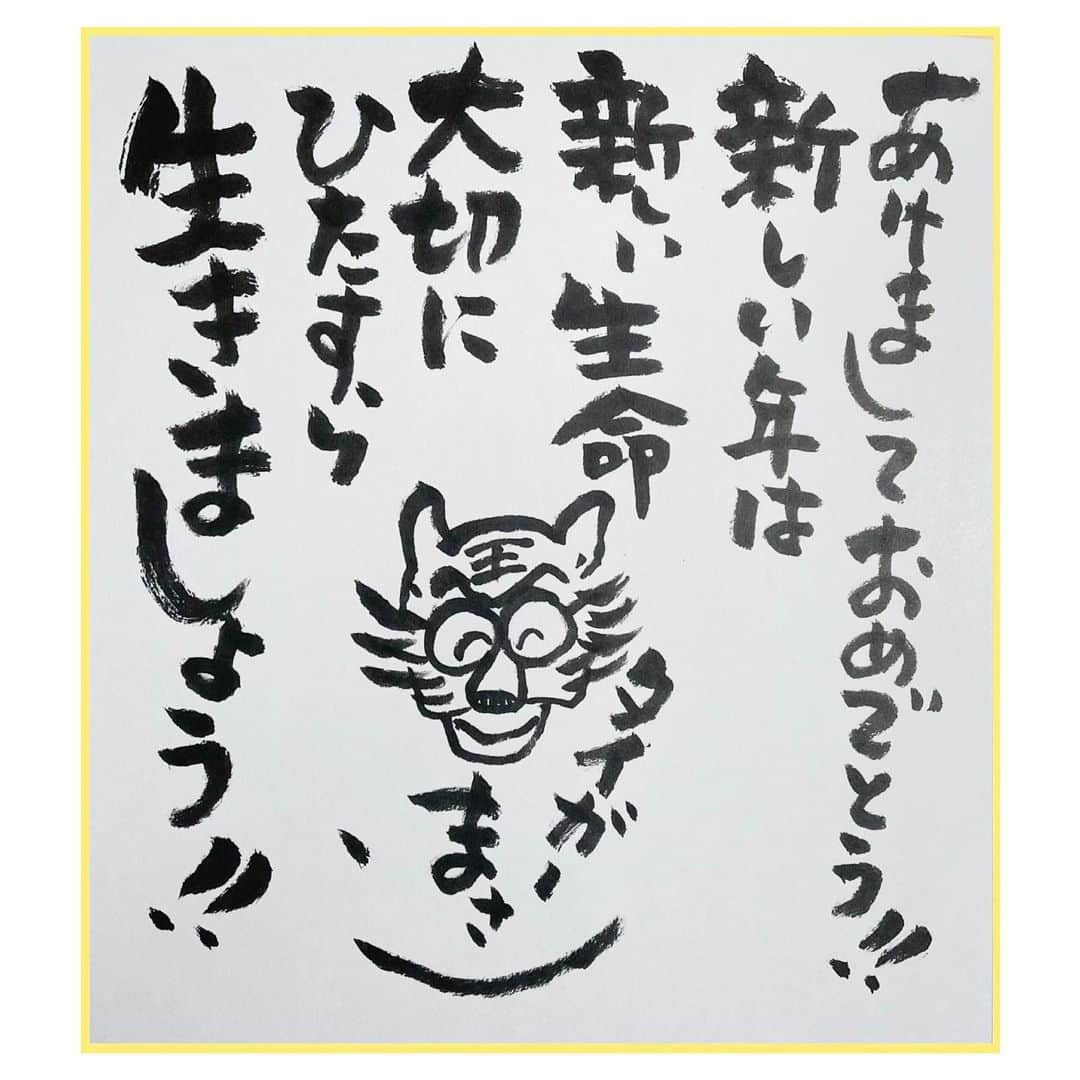 あけましておめでとう!!
新しい年は
新しい生命
大切に
ひたすら
生きましょう!!
王
タイガー
まさ